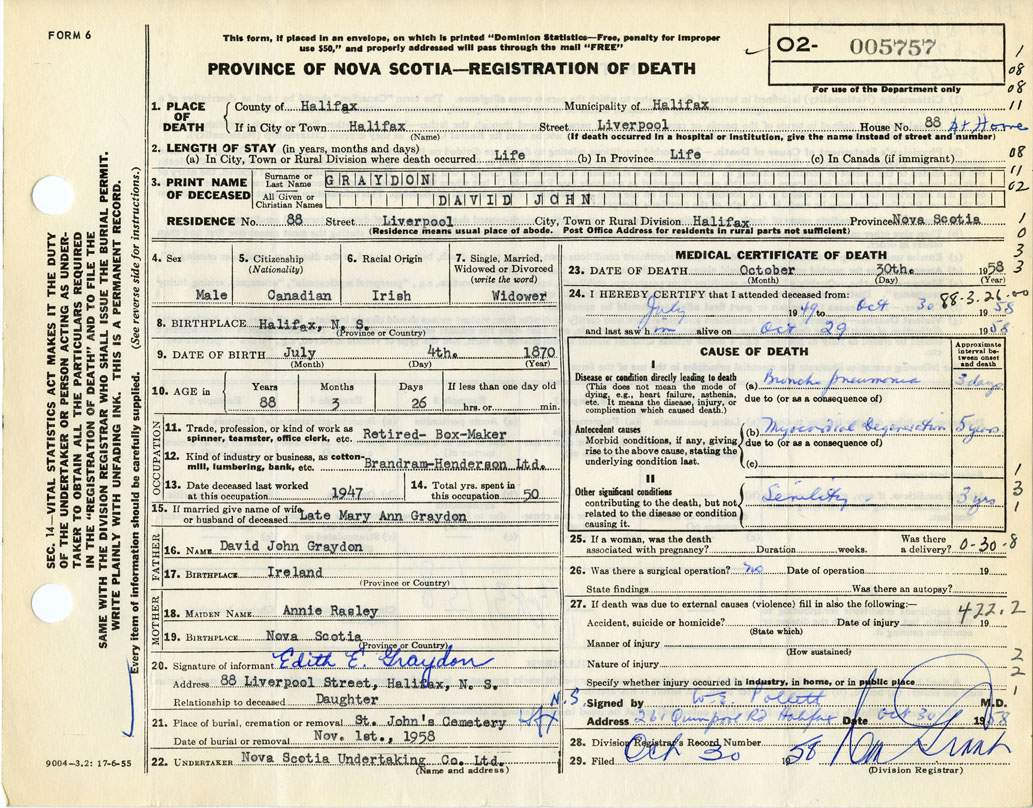 FORM 6
This form, if placed in an envelope, on which is printed "Dominion Statistics—Free, penalty for improper
use $50," and properly addressed will pass through the mail "FREE"
PROVINCE OF NOVA SCOTIA—REGISTRATION OF DEATH
02- 005757
For use of the Department only
1. PLACE OF DEATH
County of Halifax Municipality of Halifax
If in City or Town Halifax Street Liverpool House No. 88 At Home
(Name) (If death occurred in a hospital or institution, give the name instead of street and number)
2. LENGTH OF STAY (in years, months and days)
(a) In City, Town or Rural Division where death occurred Life (b) In Province Life (c) In Canada (if immigrant)
3. PRINT NAME OF DECEASED
Surname or Last Name GRAYDON
All Given or Christian Names DAVID JOHN
RESIDENCE No. 88 Street Liverpool City, Town or Rural Division Halifax Province Nova Scotia
(Residence means usual place of abode. Post Office Address for residents in rural parts not sufficient)
4. Sex
Male
5. Citizenship (Nationality)
Canadian
6. Racial Origin
Irish
7. Single, Married, Widowed or Divorced (write the word)
Widower
8. BIRTHPLACE Halifax, N. S.
(Province or Country)
9. DATE OF BIRTH July 4th. 1870
(Month) (Day) (Year)
10. AGE in
Years Months Days If less than one day old
88 3 26 hrs. or min.
OCCUPATION
11. Trade, profession, or kind of work as
spinner, teamster, office clerk, etc. Retired- Box-Maker
12. Kind of industry or business, as cotton-
mill, lumbering, bank, etc. Brandram-Henderson Ltd.
13. Date deceased last worked
at this occupation 1947
14. Total yrs. spent in
this occupation 50
15. If married give name of wife
or husband of deceased Late Mary Ann Graydon
FATHER
16. NAME David John Graydon
17. BIRTHPLACE Ireland
(Province or Country)
MOTHER
18. MAIDEN NAME Annie Rasley
19. BIRTHPLACE Nova Scotia
(Province or Country)
20. Signature of informant Edith E. Graydon
Address 88 Liverpool Street, Halifax, N. S.
Relationship to deceased Daughter
21. Place of burial, cremation or removal St. John's Cemetery Hfx N.S.
Date of burial or removal Nov. 1st., 1958
22. UNDERTAKER Nova Scotia Undertaking Co. Ltd.
(Name and address)
MEDICAL CERTIFICATE OF DEATH
23. DATE OF DEATH October 30th. 1958
(Month) (Day) (Year)
24. I HEREBY CERTIFY that I attended deceased from: 88-3-26-00
July 1949 to Oct 30 1958
and last saw him alive on Oct 29 1958
CAUSE OF DEATH
Approximate interval between onset and death
I
Disease or condition directly leading to death
(This does not mean the mode of
dying, e.g., heart failure, asthenia,
etc. It means the disease, injury, or
complication which caused death.)
(a) Broncho pneumonia 3 days
due to (or as a consequence of)
Antecedent causes
Morbid conditions, if any, giving
rise to the above cause, stating the
underlying condition last.
(b) Myocardial Degeneration 5 years
due to (or as a consequence of)
(c)
II
Other significant conditions
contributing to the death, but not
related to the disease or condition
causing it.
Senility 3 yrs
25. If a woman, was the death
associated with pregnancy? Duration weeks. Was there
a delivery? 0-30-8
26. Was there a surgical operation? no Date of operation 19
State findings Was there an autopsy?
27. If death was due to external causes (violence) fill in also the following:— 422.2
Accident, suicide or homicide? Date of injury 19
(State which)
Manner of injury
(How sustained)
Nature of injury
Specify whether injury occurred in industry, in home, or in public place
Signed by W. E. Pollett M.D.
Address 261 Quinpool Rd Halifax Date Oct 30 1958
28. Division Registrar's Record Number
29. Filed Oct 30 1958
(Division Registrar)
SEC. 14—VITAL STATISTICS ACT MAKES IT THE DUTY
OF THE UNDERTAKER OR PERSON ACTING AS UNDER-
TAKER TO OBTAIN ALL THE PARTICULARS REQUIRED
IN THE "REGISTRATION OF DEATH" AND TO FILE THE
SAME WITH THE DIVISION REGISTRAR WHO SHALL ISSUE THE BURIAL PERMIT.
WRITE PLAINLY WITH UNFADING INK. THIS IS A PERMANENT RECORD.
Every item of information should be carefully supplied. (See reverse side for instructions.)
9004-3.2: 17-6-55
1
08
08
11
08
11
02
1
0
3
3
1
3
1
2
2
1